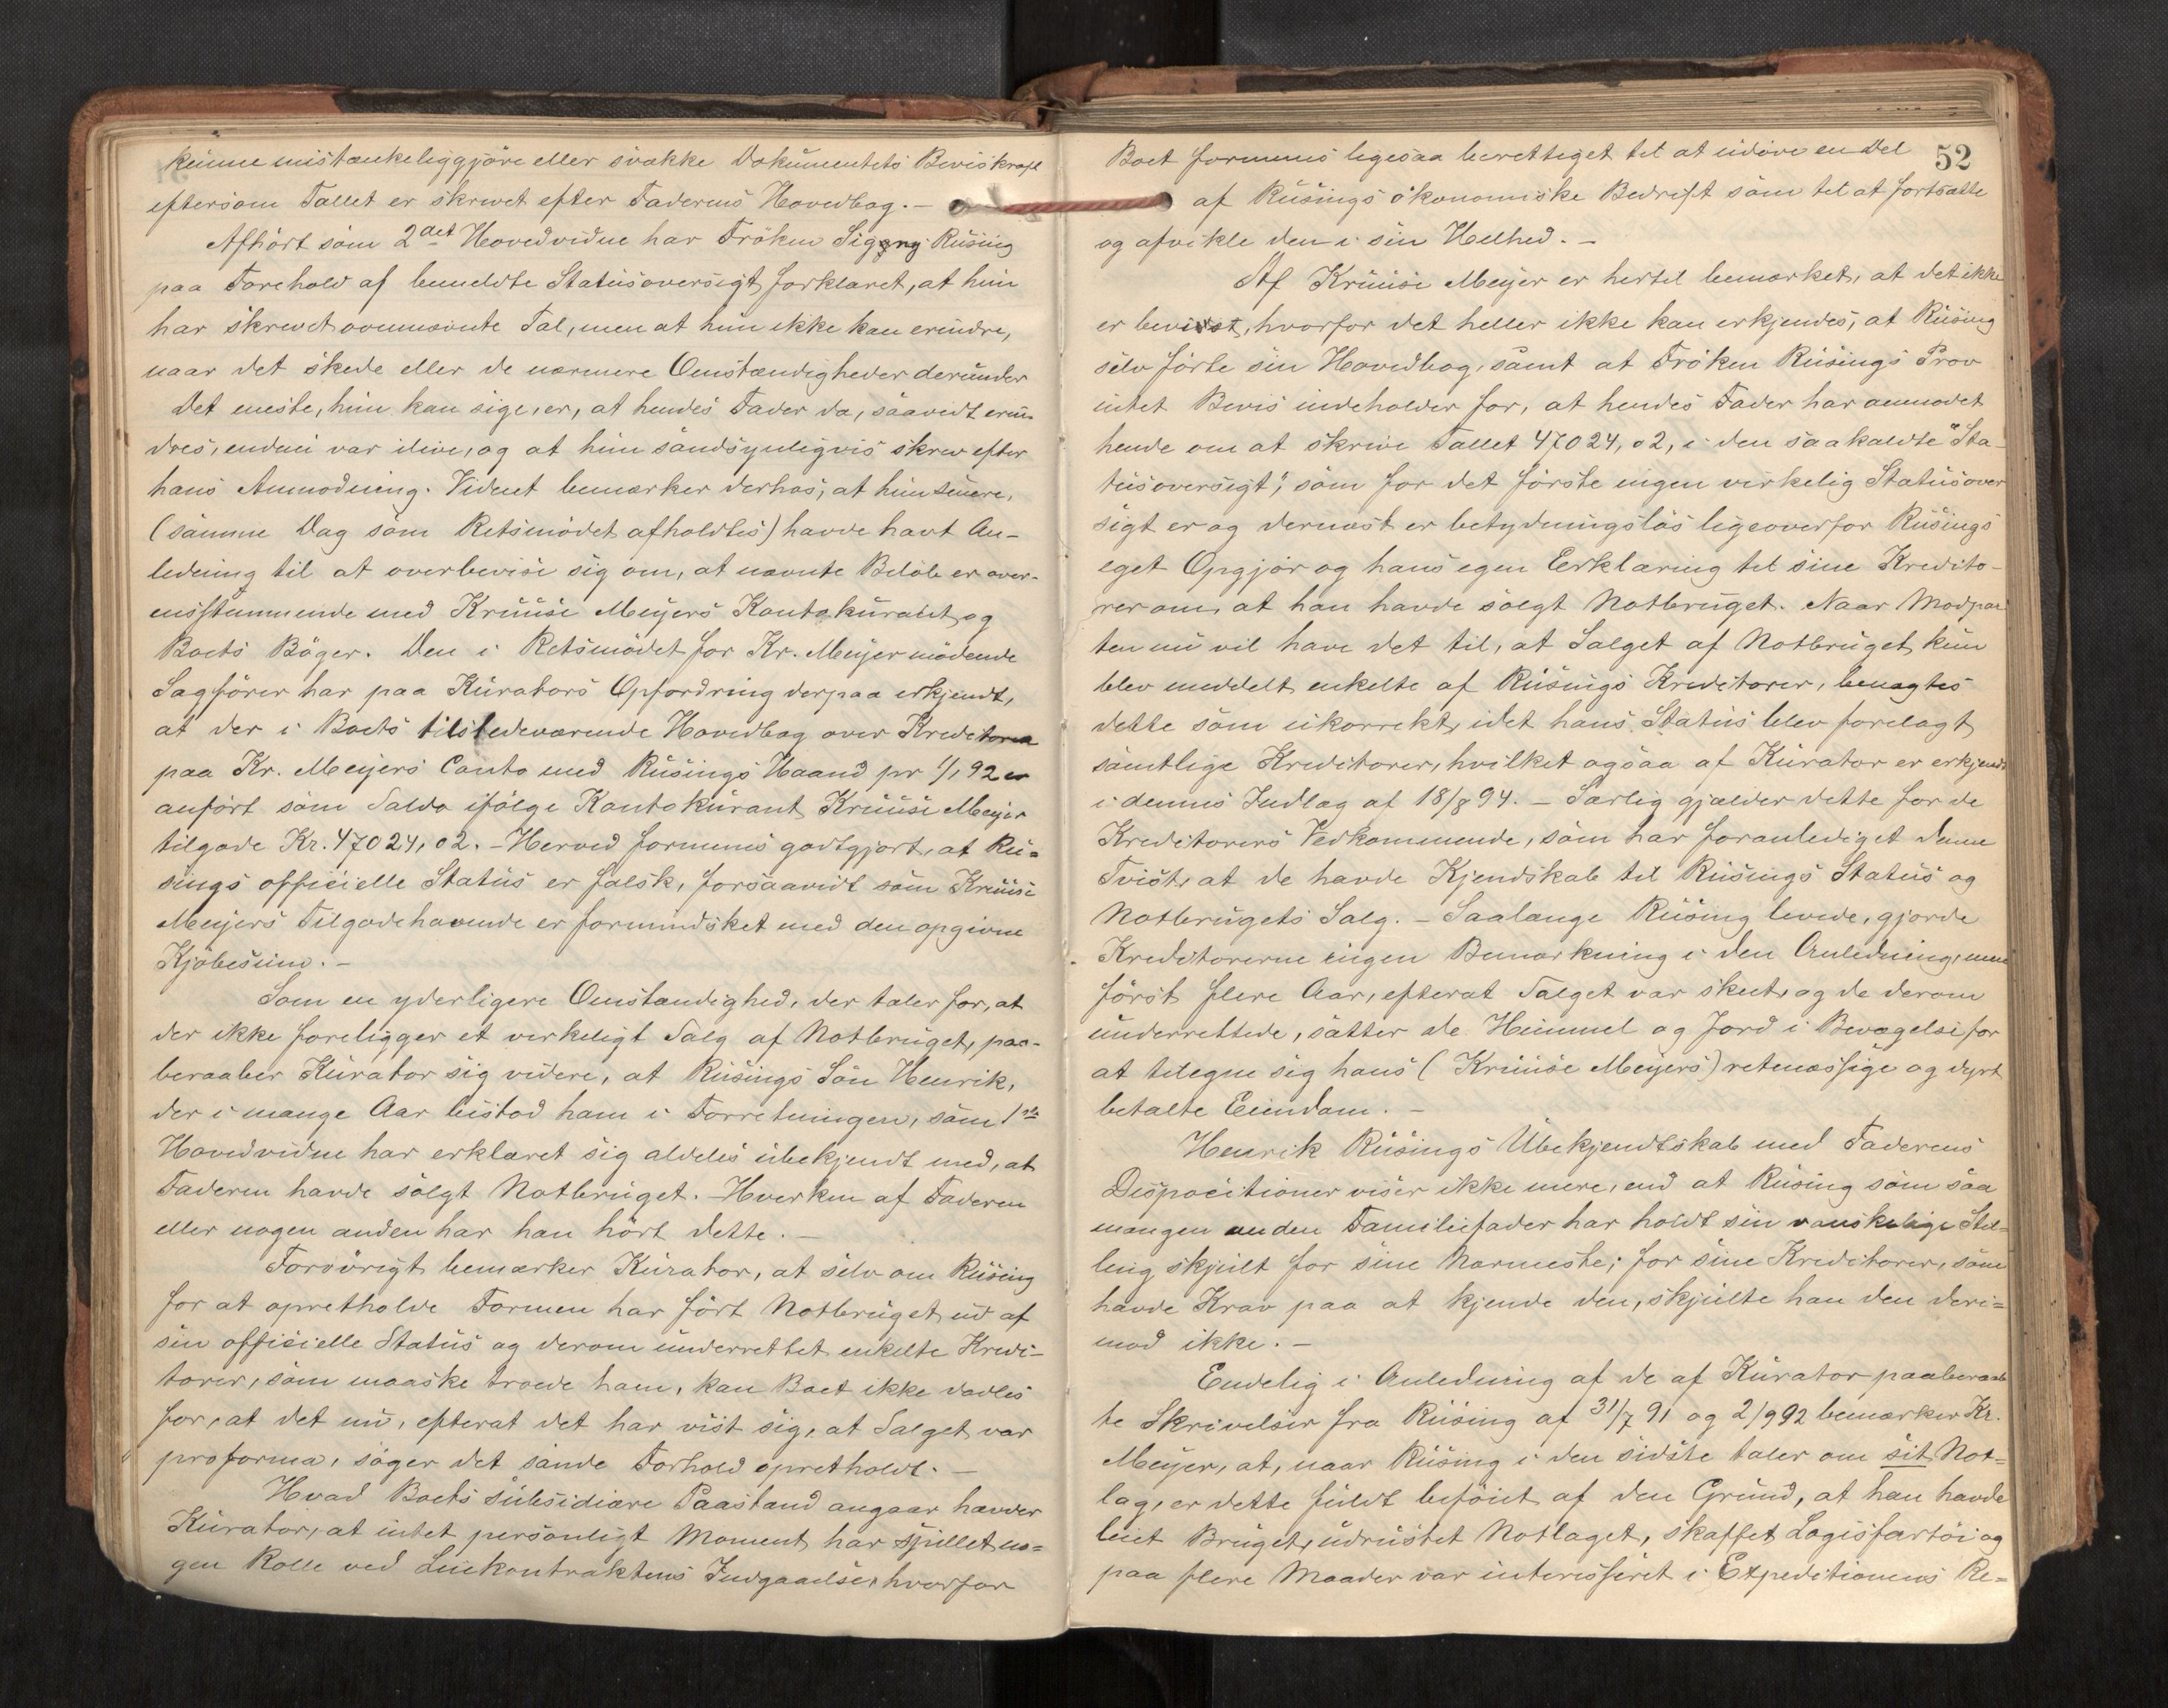 kunne mistænkeliggjöre eller svække Dokumentets Beviskraft
eftersom Tallet er skrevet efter Faderens Hovedbog. —
Afhört som 2det Hovedvidne har Fröken Signy Rüsing
paa Forehold af bemeldte Statusoversigt forklaret, at hun
har skrevet ovennævnte Tal, men at hun ikke kan erindre,
naar det skede eller de nærmere Omstændigheder derunder
Det eneste, hun kan sige, er, at hendes Fader da, saavidt erin-
dres, endnu var ilive, og at hun sandsynligvis skrev efter
hans Anmodning. Vidnet bemærker derhos, at hun senere,
(samme Dag som Retsmödet afholdtes) havde havt An-
ledning til at overbevise sig om, at nævnte Belöb er over-
ensstemmende med Kruuse Meyers Kontokurant og
Boets Böger. Den i Retsmödet for Kr. Meyer mödende
Sagförer har paa Kurators Opfordring derpaa erkjendt,
at der i Boets tilstedeværende Hovedbog over Kreditorer
paa Kr. Meyers Conto med Rüsings Haand pr 1/1 92 er
anfört som Saldo ifölge Kontokurant Kruuse Meyer
tilgode Kr. 47024,02. — Herved formenes godtgjort, at Rü-
sings officielle Status er falsk, forsaavidt som Kruuse
Meyers Tilgodehavende er formindsket med den opgivne
Kjöbesum. —
Som en yderligere Omstændighed, der taler for, at
der ikke foreligger et virkeligt Salg af Notbruget, paa-
beraaber Kurator sig videre, at Rüsings Sön Henrik,
der i mange Aar bistod ham i Forretningen, som 1ste
Hovedvidne har erklæret sig aldeles ubekjendt med, at
Faderen havde solgt Notbruget. — Hverken af Faderen
eller nogen anden har han hört dette. —
Forövrigt bemærker Kurator, at selv om Rüsing
for at opretholde Formen har fört Notbruget ud af
sin officielle Status og derom underrettet enkelte Kredi-
torer, som maaske troede ham, kan Boet ikke dadles
for, at det nu, efterat det har vist sig, at Salget var
proforma, söger det sande Forhold opretholdt. —
Hvad Boets subsidiære Paastand angaar hævder
Kurator, at intet personligt Moment har spillet no-
gen Rolle ved Leiekontraktens Indgaaelse, hvorfor
52
Boet formenes ligesaa berettiget til at udöve en Del
af Rüsings ökonomiske Bedrift som til at fortsætte
og afvikle den i sin Helhed. —
Af Kruuse Meyer er hertil bemærket, at det ikke
er bevist, hvorfor det heller ikke kan erkjendes, at Rüsing
selv förte sin Hovedbog, samt at Fröken Rüsings Prov
intet Bevis indeholder for, at hendes Fader har anmodet
hende om at skrive Tallet 47024,02, i den saakaldte "Sta-
tusoversigt", som for det förste ingen virkelig Statusover
sigt er og dernæst er betydningslös ligeoverfor Rüsings
eget Opgjör og hans egen Erklæring til sine Kredito-
rer om, at han havde solgt Notbruget. Naar Modpar
ten nu vil have det til, at Salget af Notbruget kun
blev meddelt enkelte af Rüsings Kreditorer, benægtes
dette som ukorrekt, idet hans Status blev forelagt
samtlige Kreditorer, hvilket ogsaa af Kurator er erkjendt
i dennes Indlæg af 18/8 94. — Særlig gjælder dette for de
Kreditorers Vedkommende, som har foranlediget denne
Tvist, at de havde Kjendskab til Rüsings Status og
Notbrugets Salg. — Saalænge Rüsing levede, gjorde
Kreditorerne ingen Bemærkning i den Anledning, men
först flere Aar, efterat Salget var skeet, og de derom
underrettede, sætter de Himmel og Jord i Bevægelse for
at tilegne sig hans (Kruuse Meyers) retmæssige og dyrt
betalte Eiendom. —
Henrik Rüsings Ubekjendtskab med Faderens
Dispocitioner viser ikke mere, end at Rüsing som saa
mangen anden Familiefader har holdt sin vanskelige Stil-
ling skjult for sine Nærmeste; for sine Kreditorer, som
havde Krav paa at kjende den, skjulte han den deri-
mod ikke. —
Endelig i Anledning af de af Kurator paaberaab
te Skrivelser fra Rüsing af 31/7 91 og 2/9 92 bemærker Kr.
Meyer, at, naar Rüsing i den sidste taler om sit Not-
lag, er dette fuldt beföiet af den Grund, at han havde
leiet Bruget, udrustet Notlaget, skaffet Logisfartöi og
paa flere Maader var interesseret i Expeditionens Re-